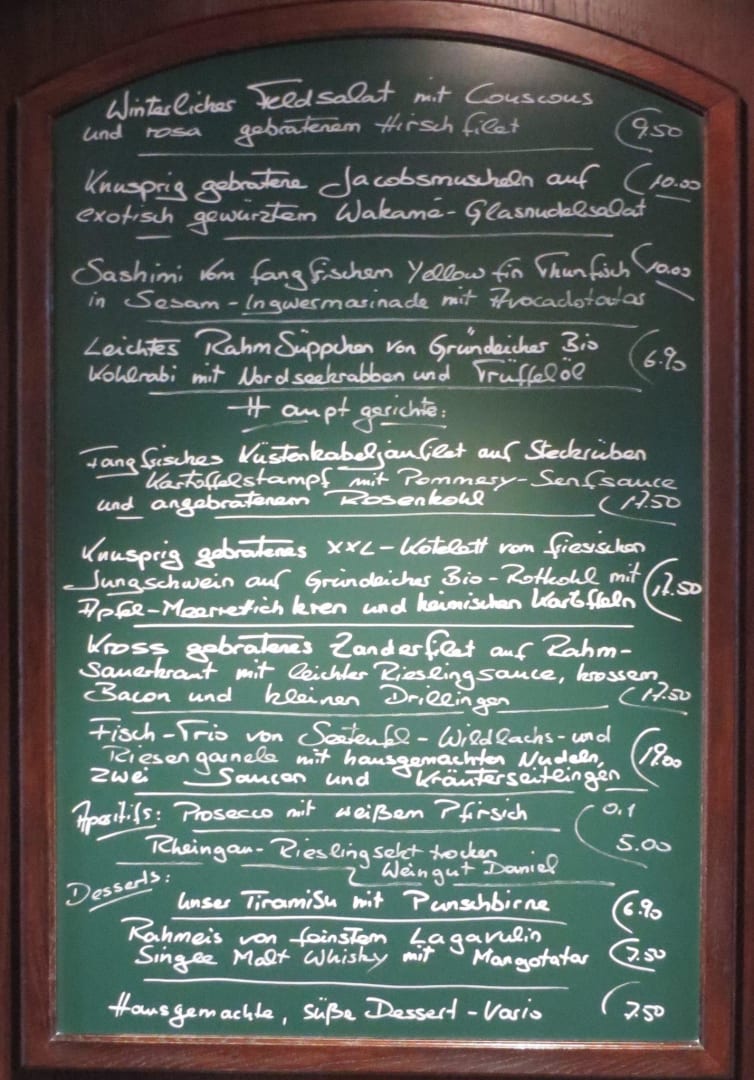 Winterlicher Feldsalat mit Couscous
und rosa gebratenem Hirschfilet 9.50
Knusprig gebratene Jacobsmuscheln auf 10.00
exotisch gewürztem Wakamé-Glasnudelsalat
Sashimi vom fangfrischem Yellow fin Thunfisch 10.00
in Sesam-Ingwermarinade mit Avocadotatar
Leichtes Rahm Süppchen von Gründeicher Bio 6.90
Kohlrabi mit Nordseekrabben und Trüffelöl
Hauptgerichte:
Fangfrisches Küstenkabeljaufilet auf Steckrüben
Kartoffelstampf mit Pommery-Senfsauce
und angebratenem Rosenkohl 17.50
Knusprig gebratenes XXL-Kotelett vom friesischen
Jungschwein auf Gründeicher Bio-Rotkohl mit 17.50
Apfel-Meerrettich kren und heimischen Kartoffeln
Kross gebratenes Zanderfilet auf Rahm-
Sauerkraut mit leichter Rieslingsauce, krossem
Bacon und kleinen Drillingen 17.50
Fisch-Trio von Seeteufel-Wildlachs-und
Riesengarnele mit hausgemachten Nudeln, 19.00
zwei Saucen und Kräuterseitlingen
Aperitifs: Prosecco mit weißem Pfirsich 0,1
Rheingau-Rieslingsekt trocken 5.00
Weingut Daniel
Desserts:
Unser TiramiSu mit Punschbirne 6.90
Rahmeis von feinstem Lagavulin
Single Malt Whisky mit Mangotatar 7.50
Hausgemachte, süße Dessert-Vario 7.50